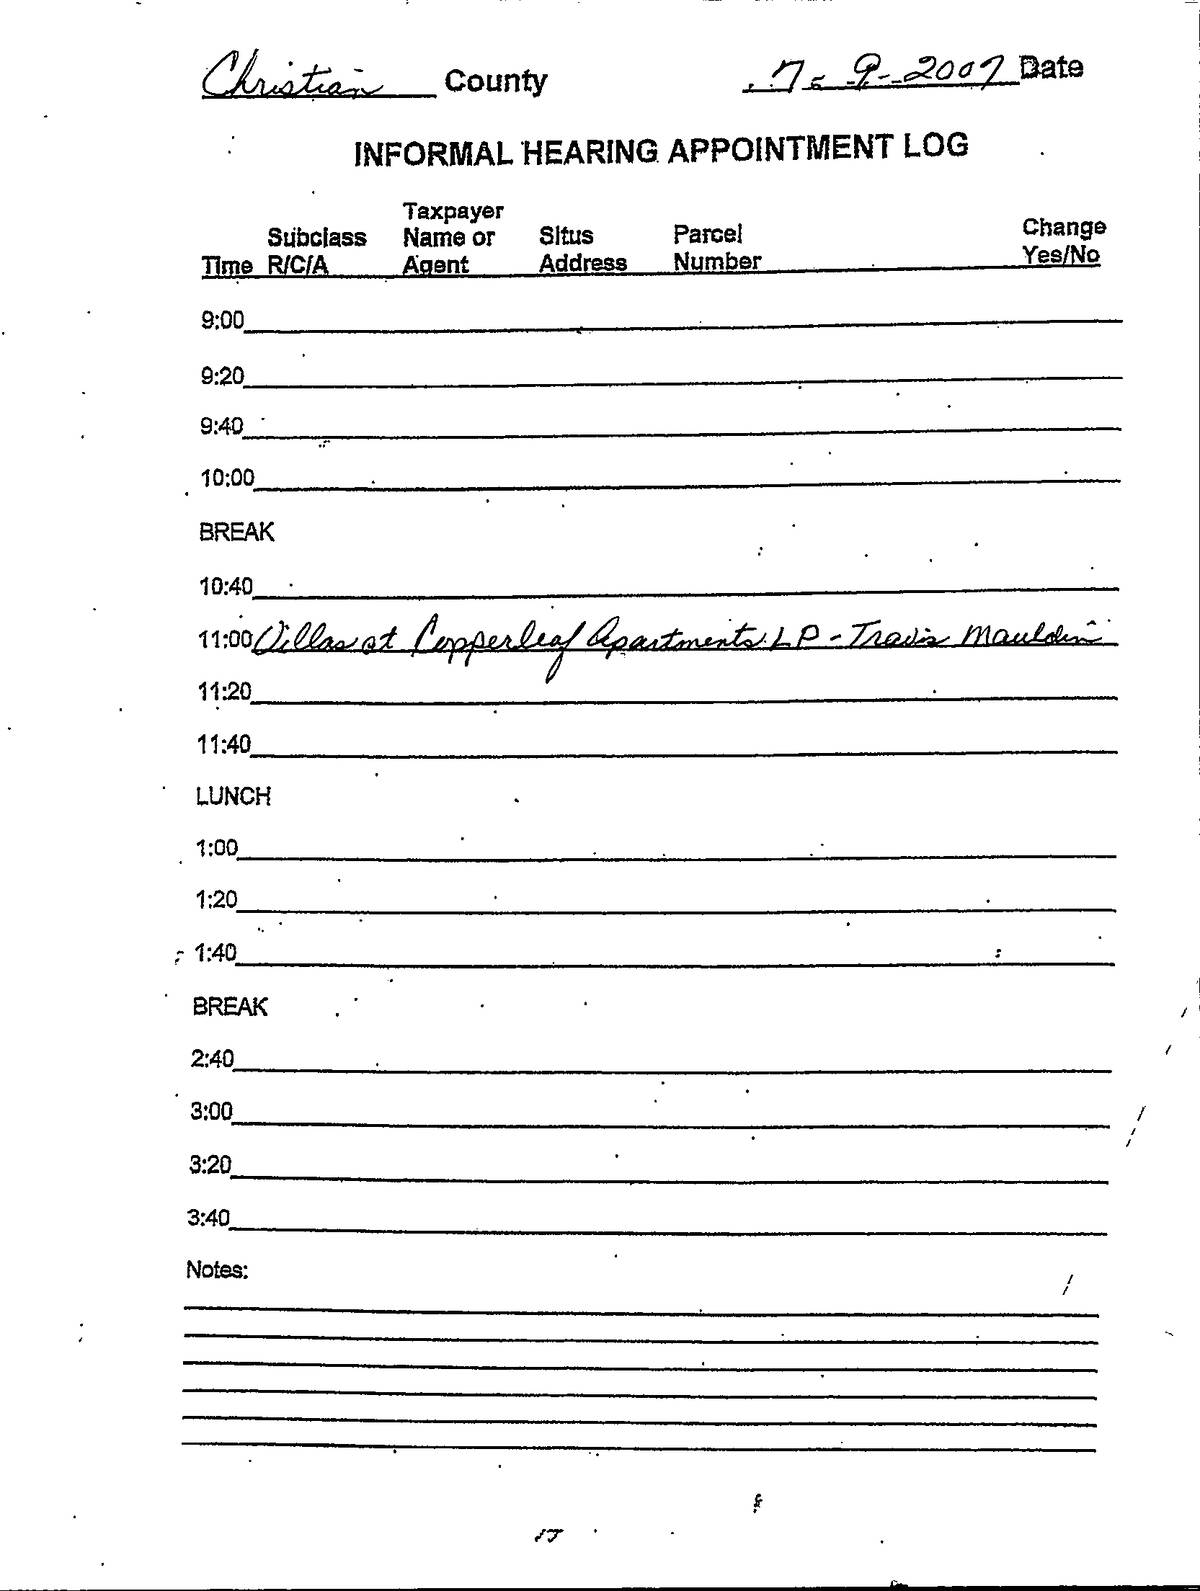 Christian County 7-9-2007 Date
INFORMAL HEARING APPOINTMENT LOG
Taxpayer
Subclass Name or Situs Parcel Change
Time R/C/A Agent Address Number Yes/No
9:00
9:20
9:40
10:00
BREAK
10:40
11:00 Villas at Copperleaf Apartments LP - Travis Mauldin
11:20
11:40
LUNCH
1:00
1:20
1:40
BREAK
2:40
3:00
3:20
3:40
Notes: